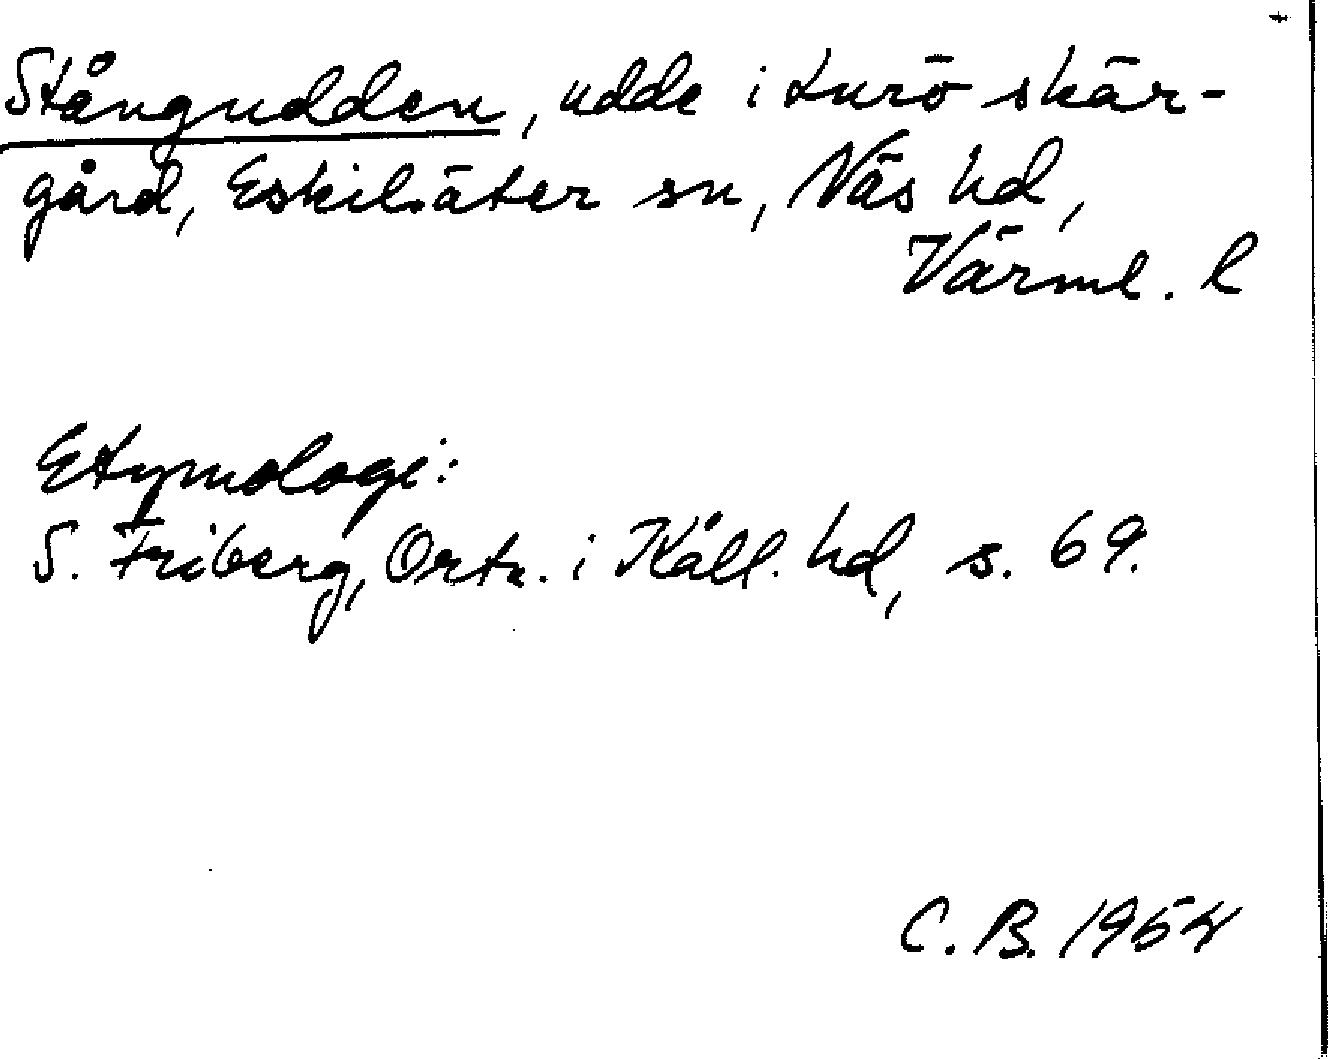 Stångudden, udde i Lurö skär-
gård, Eskilsäter sn, Näs hd,
Värml. l
Etymologi:
S. Friberg, Ortn. i Kåll. hd, s. 69.
C. B. 1954